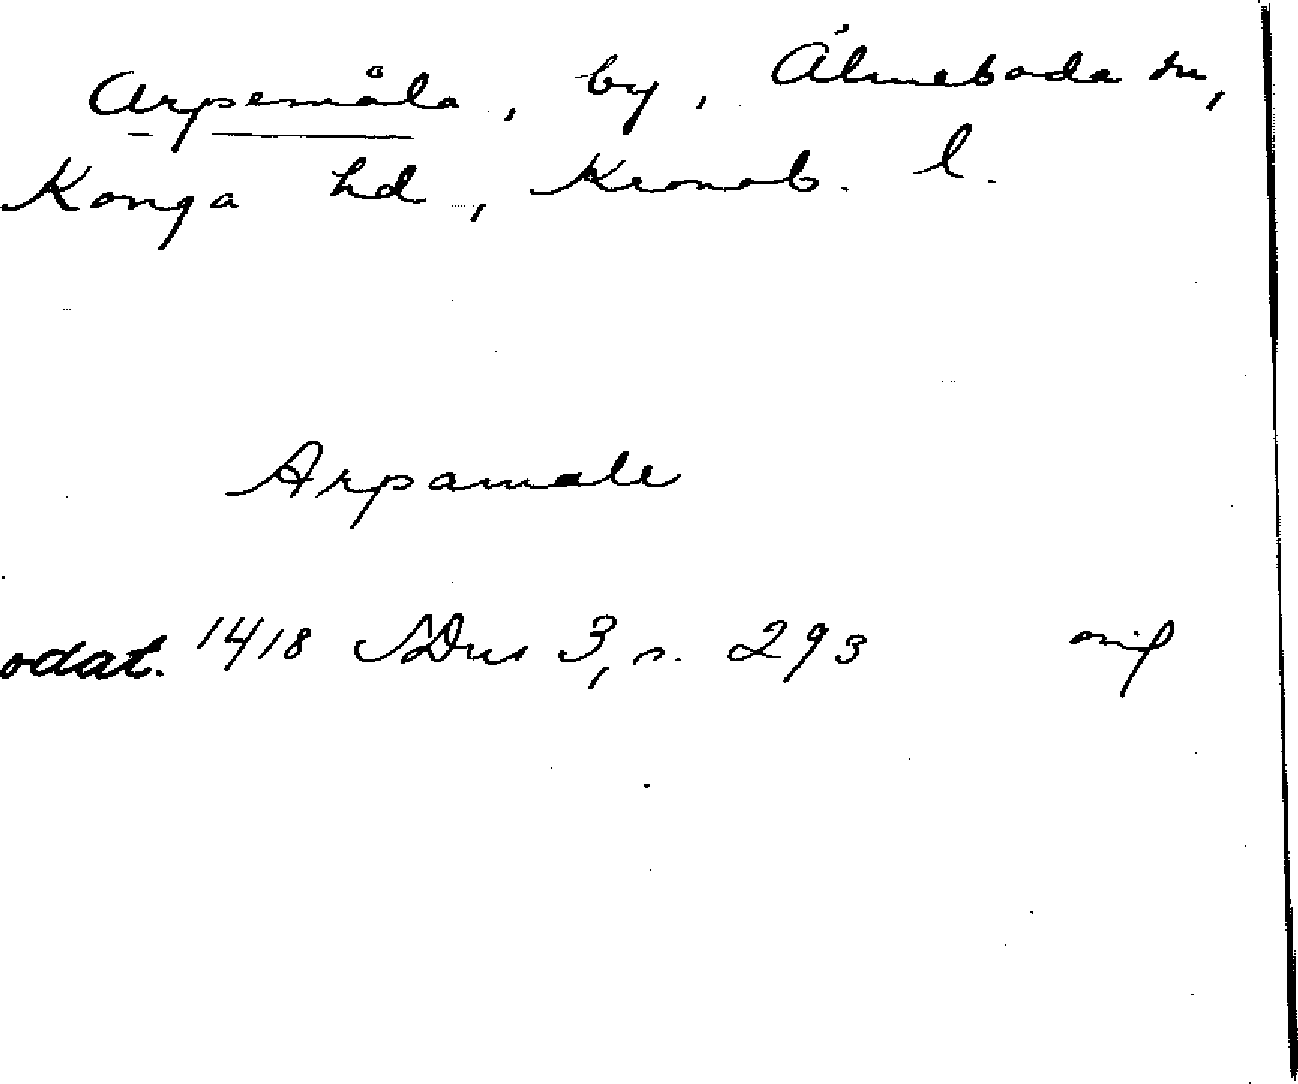 Arpemåla, by, Älmeboda sn,
Konga hd, Kronob. l.
Arpamale
odat. 1418 SDns 3, s. 293 orig